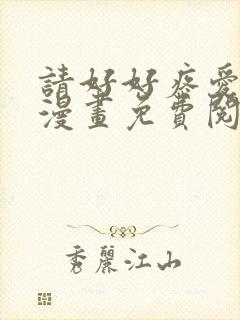 請好好疼愛
漫畫免費閱
秀麗江山